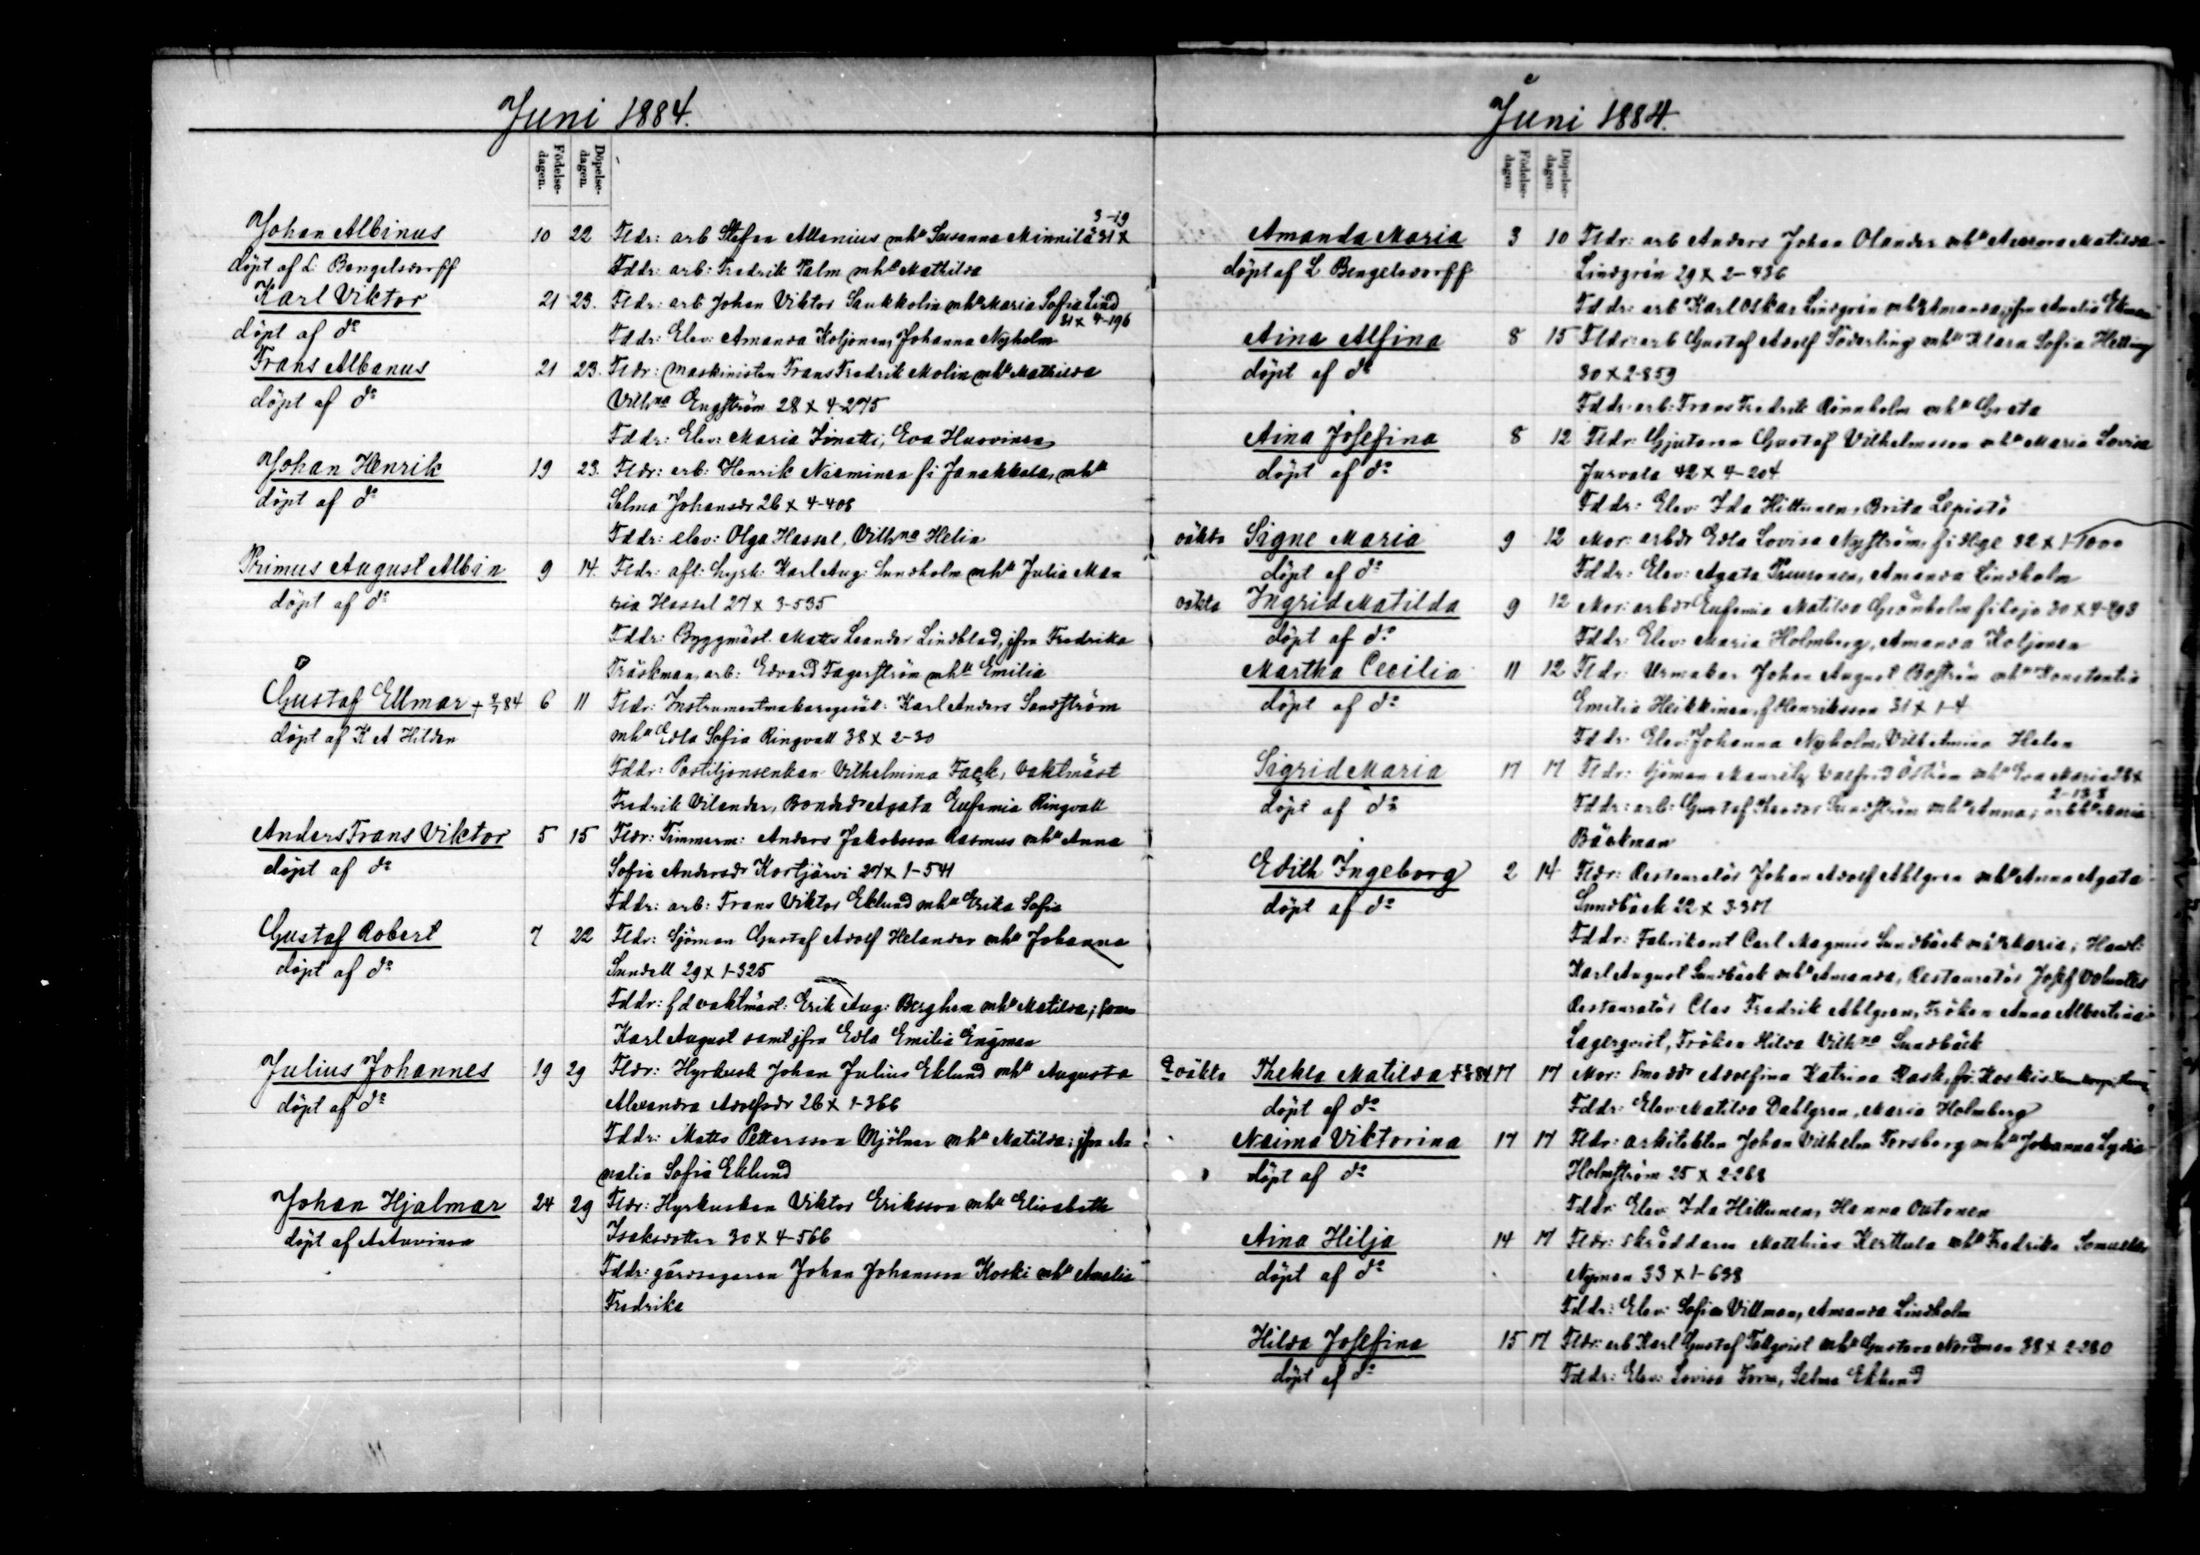 Juni 1884.
Födelse-
dagen.
Döpelse-
dagen.
Johan Albinus 10 22 Fldr: arb Stefan Allenius mhu Susanna Minnilä 31 x
3-19
döpt af L. Bengelsdorff Fddr: arb: Fredrik Palm mhu Mathilda
Karl Viktor 21 23. Fldr: arb Johan Viktor Saukkolin mhu Maria Sofia Lind
31 x 4-196
döpt af do Fddr: Elev: Amanda Koljonen, Johanna Nyholm
Frans Albanus 21 23. Fldr: maskinisten Frans Fredrik Molin mhu Mathilda
döpt af do Vilhna Engström 28 x 4-275
Fddr: Elev: Maria Evä Huovinen
Johan Henrik 19 23. Fldr: arb: Henrik Nieminen fi Janakkala, mhu
döpt af do Selma Johansdr 26 x 4-408
Fddr: elev: Olga Hassel, Vilhna Helin
Primus August Albin 9 14. Fldr: aft: Karl Aug: Sundholm mhu Julia Ma
döpt af do ria Hassel 27 x 3-535
Fddr: Byggmäst. Matts Leander Lindblad, jfrn Fredrika
Träskman, arb: Edvard Fagerström mhu Emilia
Gustaf Ellmar + 84 6 11 Fldr: Instrumentmakaregesäl: Karl Anders Sandström
döpt af K A Hildén mhu Edla Sofia Ringvall 38 x 2-30
Fddr: Postiljonsenkan Vilhelmina Fack, Vaktmäst
Fredrik Vilander, Bondedr Agata Eufemia Ringvall
Anders Frans Viktor 5 15 Fldr: Timmerm: Anders Jakobsson Rasmus mhu Anna
döpt af do Sofia Andersdr Kortjärvi 27 x 1-541
Fddr: arb: Frans Viktor Eklund mhu Erika Sofia
Gustaf Robert 7 22 Fldr: Sjöman Gustaf Adolf Helander mhu Johanna
döpt af do Sundell 29 x 1-325
Fddr: f d vaktmäst: Erik Aug: Berghem mhu Matilda;
Karl August samt jfrn Edla Emilia Engman
Julius Johannes 19 29 Fldr: Hyrkusk Johan Julius Eklund mhu Augusta
döpt af do Alexandra Adolfsdr 26 x 1-366
Fddr: Matts Pettersson Mjölner mhu Matilda; jfrn A
malia Sofia Eklund
Johan Hjalmar 24 29 Fldr: Hyrkusken Viktor Eriksson mhu Elisabeth
döpt af A Auvinen Isaksdotter 30 x 4-566
Fddr: gårdsegaren Johan Johansson Koski mhu Amalia
Fredrika
Juni 1884.
Födelse-
dagen.
Döpelse-
dagen.
Amanda Maria 3 10 Fldr: arb Anders Johan Olander mhu Matilda
döpt af L Bengelsdorff Lindgrén 29 x 2-436
Fddr: arb Karl Oskar Lindgrén mhu Amanda, jfrn Amalia Ekman
Aina Alfina 8 15 Fldr: arb Gustaf Adolf Söderling mhu Klara Sofia
döpt af do 30 x 2-859
Fddr: arb: Frans Fredrik Rönnholm mhu Greta
Aina Josefina 8 12 Fldr: Gjutaren Gustaf Vilhelmsson mhu Maria Lovisa
döpt af do Jurvala 42 x 4-204
Fddr: Elev: Ida Hiltunen, Brita Lepistö
oäkta Signe Maria 9 12 Mor: arbdr Edla Lovisa Nyström, fi 32 x 1-1000
döpt af do Fddr: Elev: Agata Amanda Lindholm
oäkta Ingrid Matilda 9 12 Mor: arbdr Eufemia Matilda Grönholm fi Lojo 30 x 4-293
döpt af do Fddr: Elev: Maria Holmberg, Amanda Koljonen
Martha Cecilia 11 12 Fldr: Urmakar Johan August Boström mhu Konstantia
döpt af do Emilia Heikkinen, f Henriksson 31 x 1-4
Fddr: Elev: Johanna Nyholm, Vilhelmina Helen
Sigrid Maria 17 17 Fldr: Sjöman Mauritz Valfrid Öström mhu Eva Maria 28 x
2-
döpt af do Fddr: arb: Gustaf Leander Sundström mhu Anna; arbhu Maria
Bäckman
Edith Ingeborg 2 14 Fldr: Restauratör Johan Adolf Ahlgren mhu Anna Agata
döpt af do Sundbäck 22 x 3-301
Fddr: Fabrikant Carl Magnus Sundbäck mhu Maria; Handl:
Karl August Sundbäck mhu Amanda, Restauratör Josef
Restauratör Clas Fredrik Ahlgren, Fröken Anna Albertina
Lagerqvist, Fröken Hilda Vilhna Sundbäck
2 oäkta Thekla Matilda + 84 17 17 Mor: Smeddr Adolfina Katrina Rask, fr. Koskis
döpt af do Fddr: Elev: Matilda Dahlgren, Maria Holmberg
Naima Viktorina 17 17 Fldr: arkitekten Johan Vilhelm Forsberg mhu Johanna Lydia
döpt af do Holmström 25 x 2-268
Fddr: Elev: Ida Hiltunen, Hanna Outonen
Aina Hilja 14 17 Fldr: skräddarn Matthias Kerttula mhu Fredrika
döpt af do Nyman 33 x 1-638
Fddr: Elev: Sofia Villman, Amanda Lindholm
Hilda Josefina 15 17 Fldr: arb Karl Gustaf Tallqvist mhu Gustava Nordman 38 x 2-280
döpt af do Fddr: Elev: Lovisa Selma Eklund